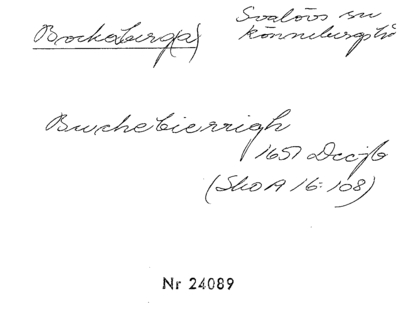 Bockeberga) Svalövs sn
Rönnebergs hd
Buchebierrigh
1651 Decjb
(SkoA 16:108)
Nr 24089